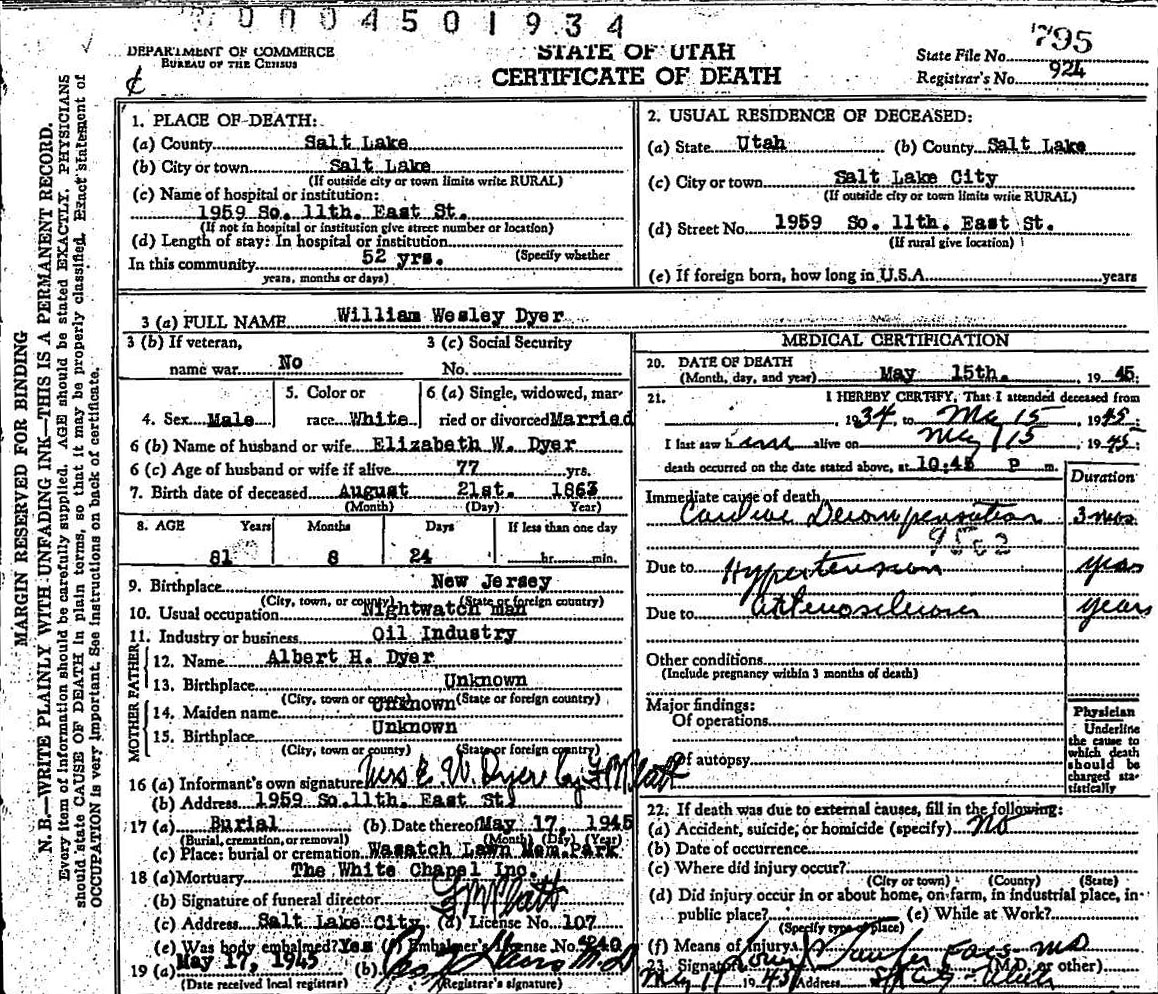 0004501934
DEPARTMENT OF COMMERCE
BUREAU OF THE CENSUS
STATE OF UTAH
CERTIFICATE OF DEATH
State File No. 795
Registrar's No. 924
MARGIN RESERVED FOR BINDING
N. B.—WRITE PLAINLY WITH UNFADING INK—THIS IS A PERMANENT RECORD.
Every item of information should be carefully supplied. AGE should be stated EXACTLY. PHYSICIANS
should state CAUSE OF DEATH in plain terms, so that it may be properly classified. Exact statement of
OCCUPATION is very important. See instructions on back of certificate.
1. PLACE OF DEATH:
(a) County Salt Lake
(b) City or town Salt Lake
(If outside city or town limits write RURAL)
(c) Name of hospital or institution:
1959 So. 11th. East St.
(If not in hospital or institution give street number or location)
(d) Length of stay: In hospital or institution
(Specify whether
In this community 52 yrs.
years, months or days)
2. USUAL RESIDENCE OF DECEASED:
(a) State Utah (b) County Salt Lake
(c) City or town Salt Lake City
(If outside city or town limits write RURAL)
(d) Street No. 1959 So. 11th. East St.
(If rural give location)
(e) If foreign born, how long in U.S.A. years
3 (a) FULL NAME William Wesley Dyer
3 (b) If veteran,
name war No
3 (c) Social Security
No.
4. Sex Male
5. Color or
race White
6 (a) Single, widowed, mar-
ried or divorced Married
6 (b) Name of husband or wife Elizabeth W. Dyer
6 (c) Age of husband or wife if alive 77 yrs.
7. Birth date of deceased August 21st. 1863
(Month) (Day) Year)
8. AGE Years Months Days If less than one day
81 8 24 hr. min.
9. Birthplace New Jersey
(City, town, or county) (State or foreign country)
10. Usual occupation Nightwatch man
11. Industry or business Oil Industry
FATHER
12. Name Albert H. Dyer
13. Birthplace Unknown
(City, town or county) (State or foreign country)
MOTHER
14. Maiden name Unknown
15. Birthplace Unknown
(City, town or county) (State or foreign country)
16 (a) Informant's own signature Mrs E. W. Dyer by G M Platt
(b) Address 1959 So. 11th. East St.
17 (a) Burial (b) Date thereof May 17, 1945
(Burial, cremation, or removal) (Month) (Day) (Year)
(c) Place: burial or cremation Wasatch Lawn Mem. Park
18 (a) Mortuary The White Chapel Inc.
(b) Signature of funeral director G M Platt
(c) Address Salt Lake City (d) License No. 107
(e) Was body embalmed? Yes (f) Embalmer's License No. 240
19 (a) May 17, 1945 (b)
(Date received local registrar) (Registrar's signature)
MEDICAL CERTIFICATION
20. DATE OF DEATH
(Month, day, and year) May 15th. , 19 45
21. I HEREBY CERTIFY, That I attended deceased from
, 1934, to May 15, 1945;
I last saw him alive on May 15 1945;
death occurred on the date stated above, at 10:45 P m.
Duration
Immediate cause of death
Cardiac Decompensation 3 mos
Due to Hypertension years
Due to Arteriosclerosis years
Other conditions
(Include pregnancy within 3 months of death)
Major findings:
Of operations
Of autopsy
Physician
Underline
the cause to
which death
should be
charged sta-
tistically
22. If death was due to external causes, fill in the following:
(a) Accident, suicide, or homicide (specify) No
(b) Date of occurrence
(c) Where did injury occur?
(City or town) (County) (State)
(d) Did injury occur in or about home, on farm, in industrial place, in
public place? (e) While at Work?
(Specify type of place)
(f) Means of Injury
23. Signature (M.D. or other)
May 17 1945 Address